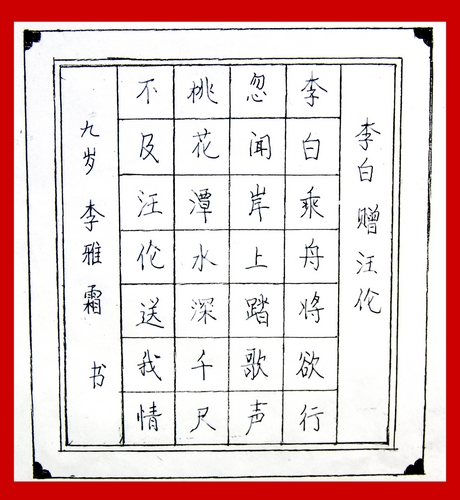 李白 赠汪伦
李白乘舟将欲行
忽闻岸上踏歌声
桃花潭水深千尺
不及汪伦送我情
九岁 李雅霜 书